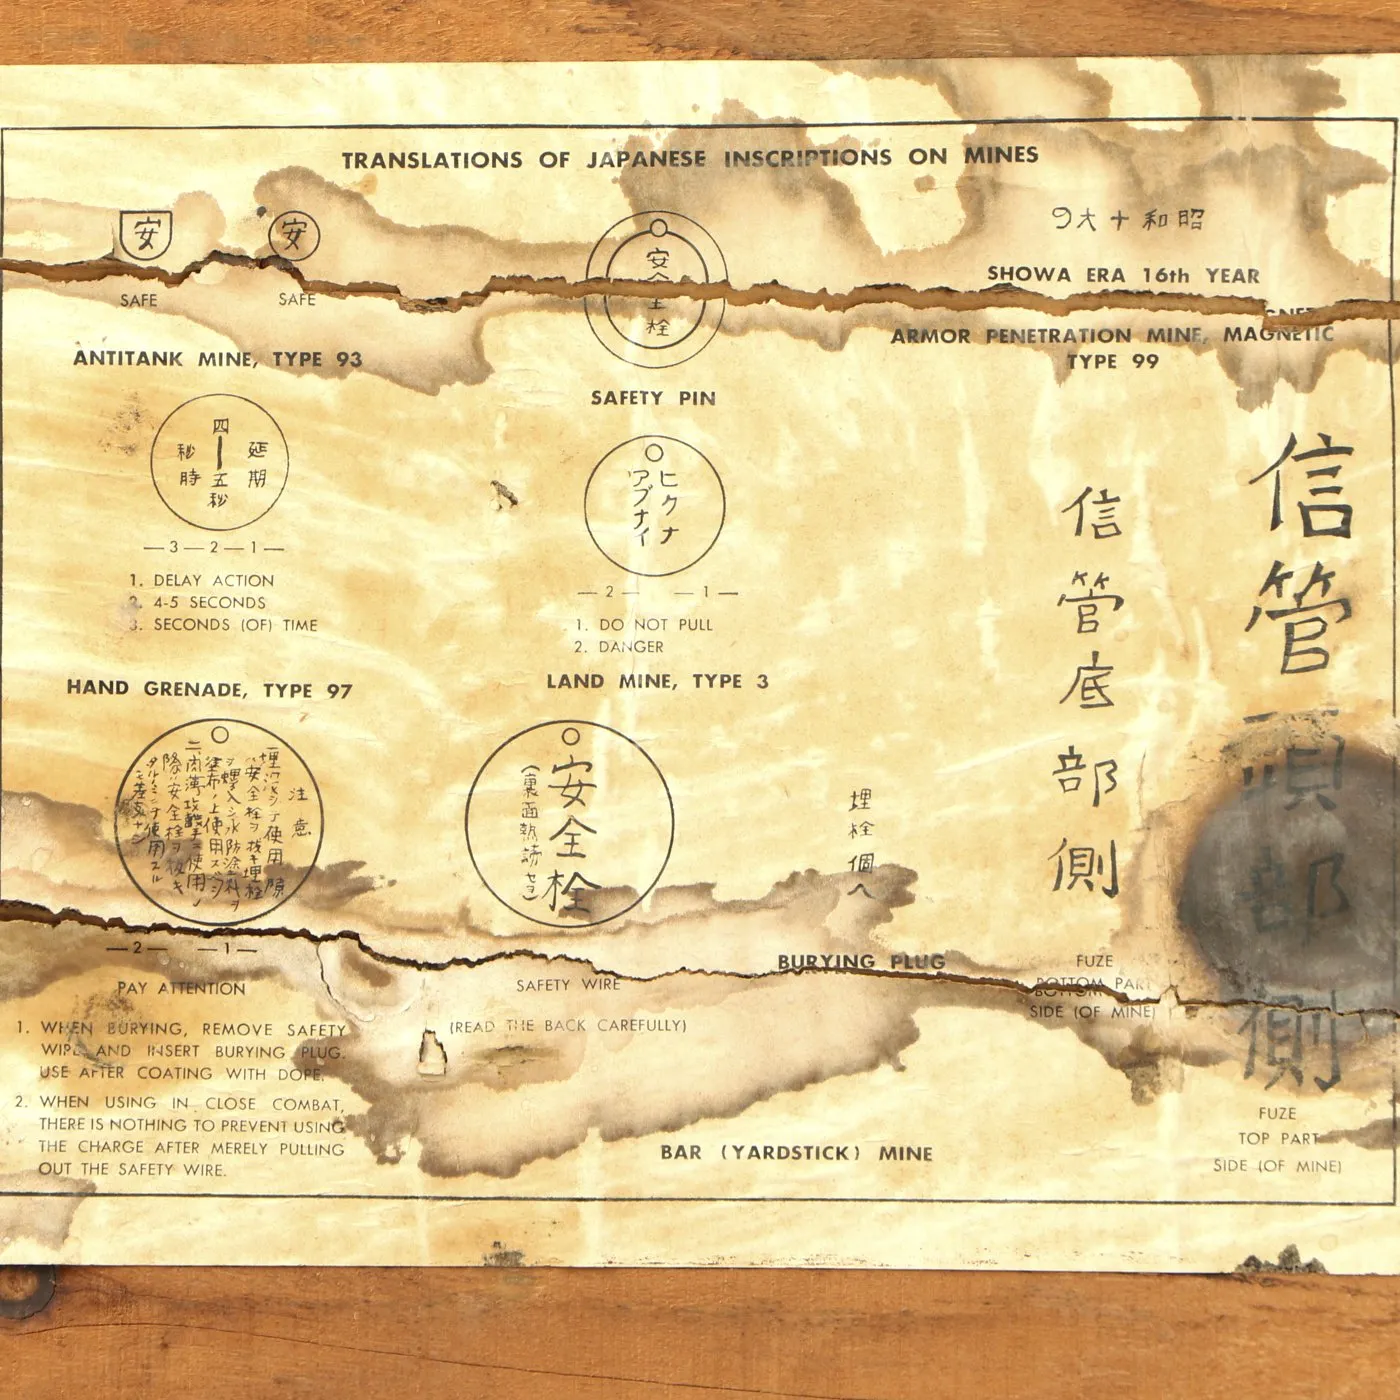 TRANSLATIONS OF JAPANESE INSCRIPTIONS ON MINES
安
安
SAFE
SAFE
ANTITANK MINE, TYPE 93
安全栓
SAFETY PIN
昭和十六
SHOWA ERA 16th YEAR
ARMOR PENETRATION MINE, MAGNETIC
TYPE 99
延期
四―五秒
秒時
—3—2—1—
1. DELAY ACTION
2. 4-5 SECONDS
3. SECONDS (OF) TIME
HAND GRENADE, TYPE 97
ヒクナ
アブナイ
—2— —1—
1. DO NOT PULL
2. DANGER
LAND MINE, TYPE 3
注意
—2— —1—
PAY ATTENTION
1. WHEN BURYING, REMOVE SAFETY
WIRE AND INSERT BURYING PLUG.
USE AFTER COATING WITH DOPE.
2. WHEN USING IN CLOSE COMBAT,
THERE IS NOTHING TO PREVENT USING
THE CHARGE AFTER MERELY PULLING
OUT THE SAFETY WIRE.
安全栓
(裏面熟読セヨ)
SAFETY WIRE
(READ THE BACK CAREFULLY)
埋栓個へ
BURYING PLUG
信管底部側
FUZE
BOTTOM PART
SIDE (OF MINE)
信管頭部側
FUZE
TOP PART
SIDE (OF MINE)
BAR (YARDSTICK) MINE